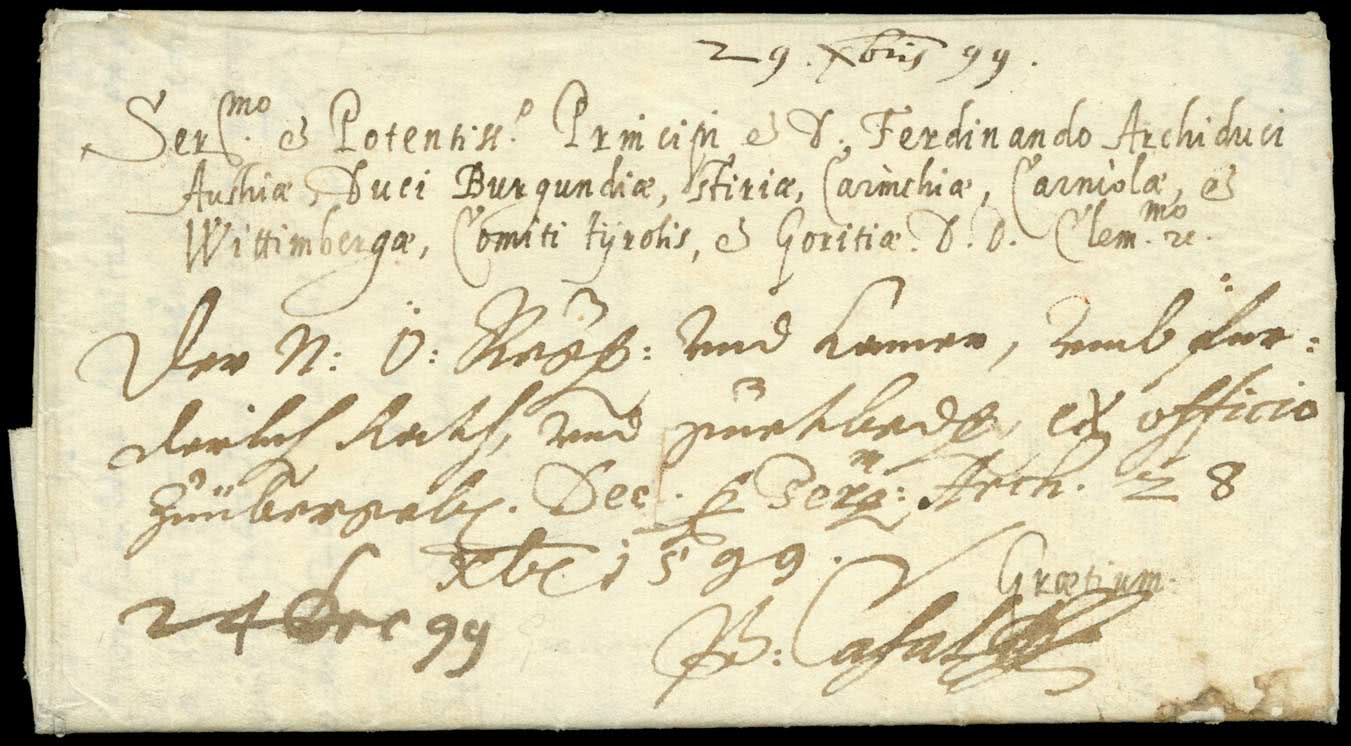 29. Xbris 99.
Ser.mo & Potentiss.o Principi & D. Ferdinando Archiduci
Austriæ, Duci Burgundiæ, Stiriæ, Carinthiæ, Carniolæ, &
Wittimbergæ, Comiti tyrolis, & Goritiæ. D. D. Clem.mo ꝛc.
Der N: Ö: und Camer, umb für=
derlich und ex officio
zuübergeben. Dec. p Serm: Arch. 28
Xbr. 1599.
Grætium.
24 Dec 99
P: Casal